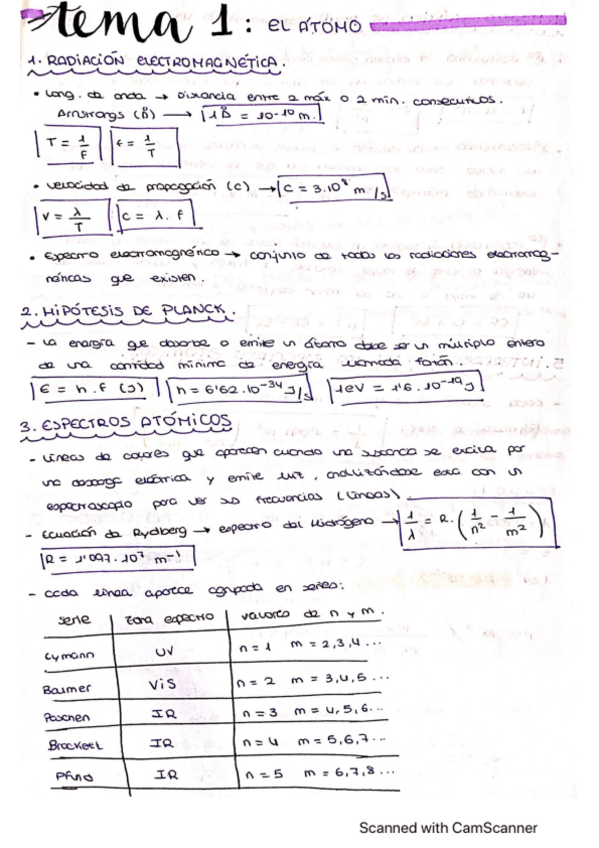 tema 1: EL ÁTOMO
1. RADIACIÓN ELECTROMAGNÉTICA.
• Long. de onda → Distancia entre 2 máx o 2 min. consecutivos.
Armstrongs (Å) → 1Å = 10-¹⁰ m.
T = 1/F f = 1/T
• Velocidad de propagación (c) → C = 3.10⁸ m/s
V = λ/T C = λ. f
• Espectro electromagnético → conjunto de todas las radiaciones electromag-
néticas que existen.
2. HIPÓTESIS DE PLANCK.
- La energía que absorbe o emite un átomo debe ser un múltiplo entero
de una cantidad mínima de energía llamada fotón.
E = h.f (J) h = 6'62.10⁻³⁴ J/s 1eV = 1'6.10⁻¹⁹ J
3. ESPECTROS ATÓMICOS
- Líneas de colores que aparecen cuando una sustancia se excita por
una descarga eléctrica y emite luz, analizándose esta con un
espectroscopio para ver sus frecuencias (líneas).
- Ecuación de Rydberg → espectro del Hidrógeno → 1/λ = R. (1/n² - 1/m²)
R = 1'097.10⁷ m⁻¹
- Cada línea aparece agrupada en series:
serie zona espectro valores de n y m.
Lymann UV n = 1 m = 2,3,4...
Balmer Vis n = 2 m = 3,4,5...
Paschen IR n = 3 m = 4,5,6...
Brackett IR n = 4 m = 5,6,7...
Pfund IR n = 5 m = 6,7,8...
Scanned with CamScanner